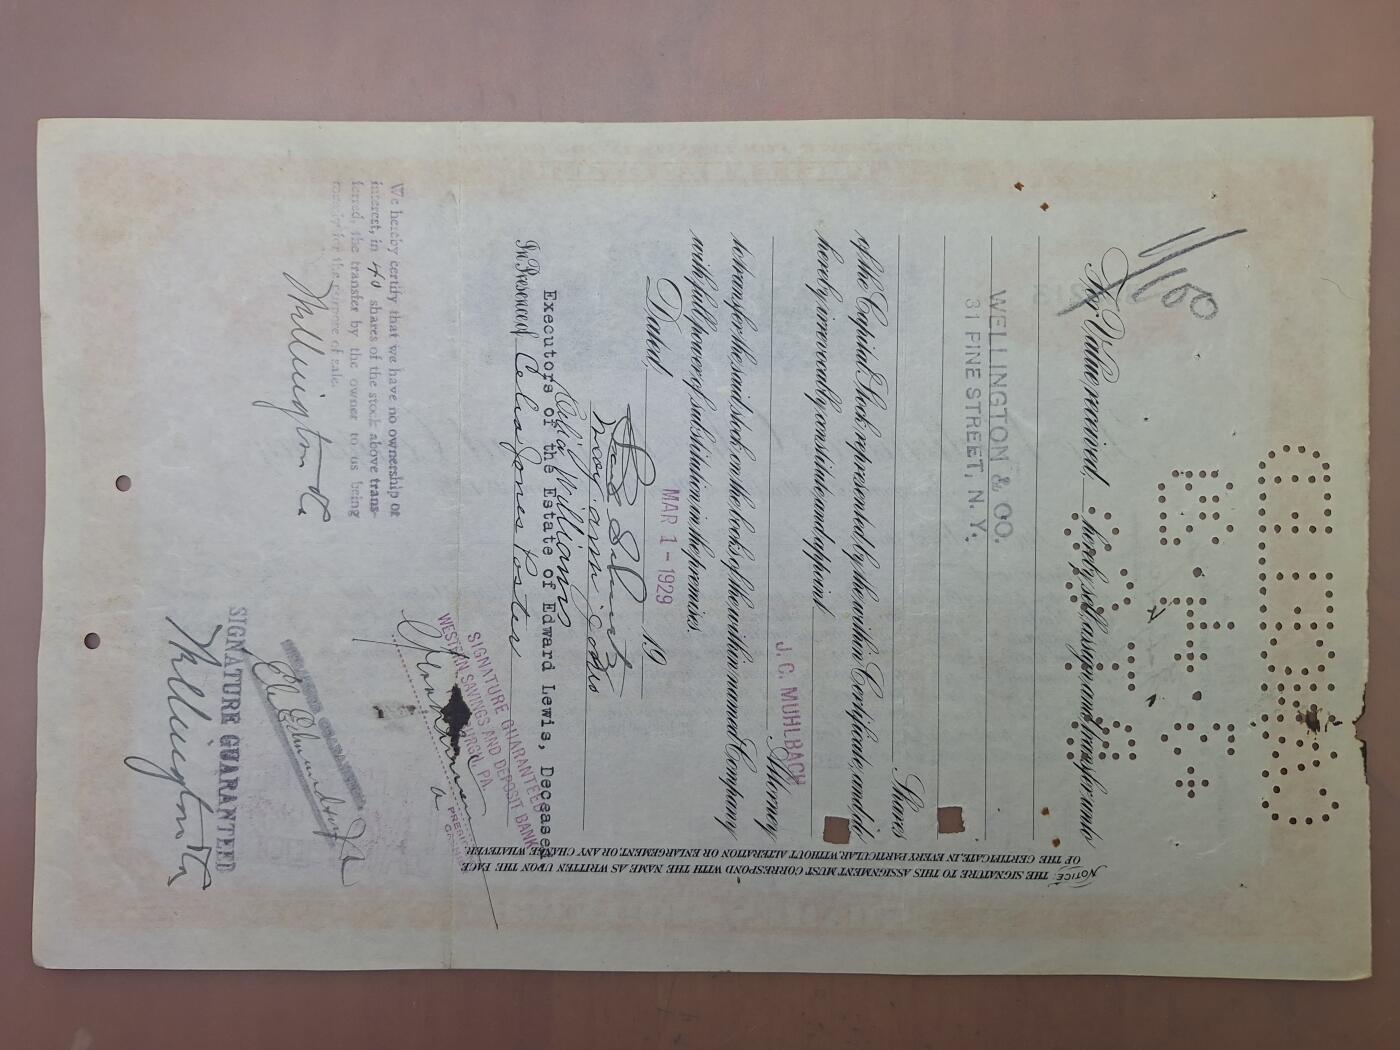 11/100
For Value received, hereby sell, assign, and transfer unto
WELLINGTON & CO.
31 PINE STREET, N. Y.
Shares
of the Capital Stock represented by the within Certificate, and do
hereby irrevocably constitute and appoint
J. C. MUHLBACH
Attorney
to transfer the said stock on the books of the within named Company
with full power of substitution in the premises.
Dated, MAR 1 - 1929 19
Executors of the Estate of Edward Lewis, Deceased
In Presence of Celia Jones Porter
Williams
SIGNATURE GUARANTEED
WESTERN SAVINGS AND DEPOSIT BANK
PA.
We hereby certify that we have no ownership or
interest, in 40 shares of the stock above trans-
ferred, the transfer by the owner to us being
for the purpose of sale.
Wellington & Co
SIGNATURE GUARANTEED
Wellington & Co
NOTICE: THE SIGNATURE TO THIS ASSIGNMENT MUST CORRESPOND WITH THE NAME AS WRITTEN UPON THE FACE
OF THE CERTIFICATE, IN EVERY PARTICULAR, WITHOUT ALTERATION OR ENLARGEMENT, OR ANY CHANGE WHATEVER.